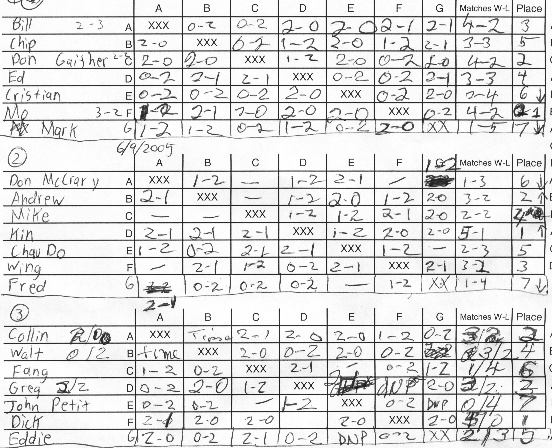 A B C D E F G Matches W-L Place
Bill 2-3 A XXX 0-2 0-2 2-0 2-0 2-1 2-1 4-2 3
Chip B 2-0 XXX 0-2 1-2 2-0 1-2 2-1 3-3 5
Don Gaither C 2-0 2-0 XXX 1-2 2-0 0-2 2-0 4-2 2
Ed D 0-2 2-1 2-1 XXX 0-2 0-2 2-1 3-3 4
Cristian E 0-2 0-2 0-2 2-0 XXX 0-2 2-0 2-4 6 ↓
Mo 3-2 F 1-2 2-1 2-0 2-0 2-0 XXX 0-2 4-2 1
Mark G 1-2 1-2 0-2 1-2 0-2 2-0 XX 1-5 7 ↓
6/9/2009
② A B C D E F Matches W-L Place
Don McCrary A XXX 1-2 — 1-2 2-1 — 1-3 6 ↓
Andrew B 2-1 XXX — 1-2 2-0 1-2 2-0 3-2 2 ↑
Mike C — — XXX 1-2 1-2 2-1 2-0 2-2
Kin D 2-1 2-1 2-1 XXX 1-2 2-0 2-0 5-1 1 ↑
Chau Do E 1-2 0-2 2-1 2-1 XXX 1-2 — 2-3 5
Wing F — 2-1 1-2 0-2 2-1 XXX 2-1 3-2 3
Fred G 0-2 0-2 0-2 — 1-2 XX 1-4 7 ↓
2-1
③ A B C D E F G Matches W-L Place
Collin A XXX 2-1 2-0 2-0 1-2 0-2 2
Walt 0/2 B time XXX 2-0 0-2 2-0 0-2 3/2 4
Fang C 1-2 0-2 XXX 2-1 — 0-2 1-2 1/4 6
Greg D 0-2 2-0 1-2 XXX DNP 2-0 2
John Petit E 0-2 0-2 — 1-2 XXX 0-2 DNP 0/4 7
Dick F 2-1 2-0 2-0 2-0 XXX 2-0 1
Eddie G 2-0 0-2 2-1 0-2 DNP 0-2 XX 5